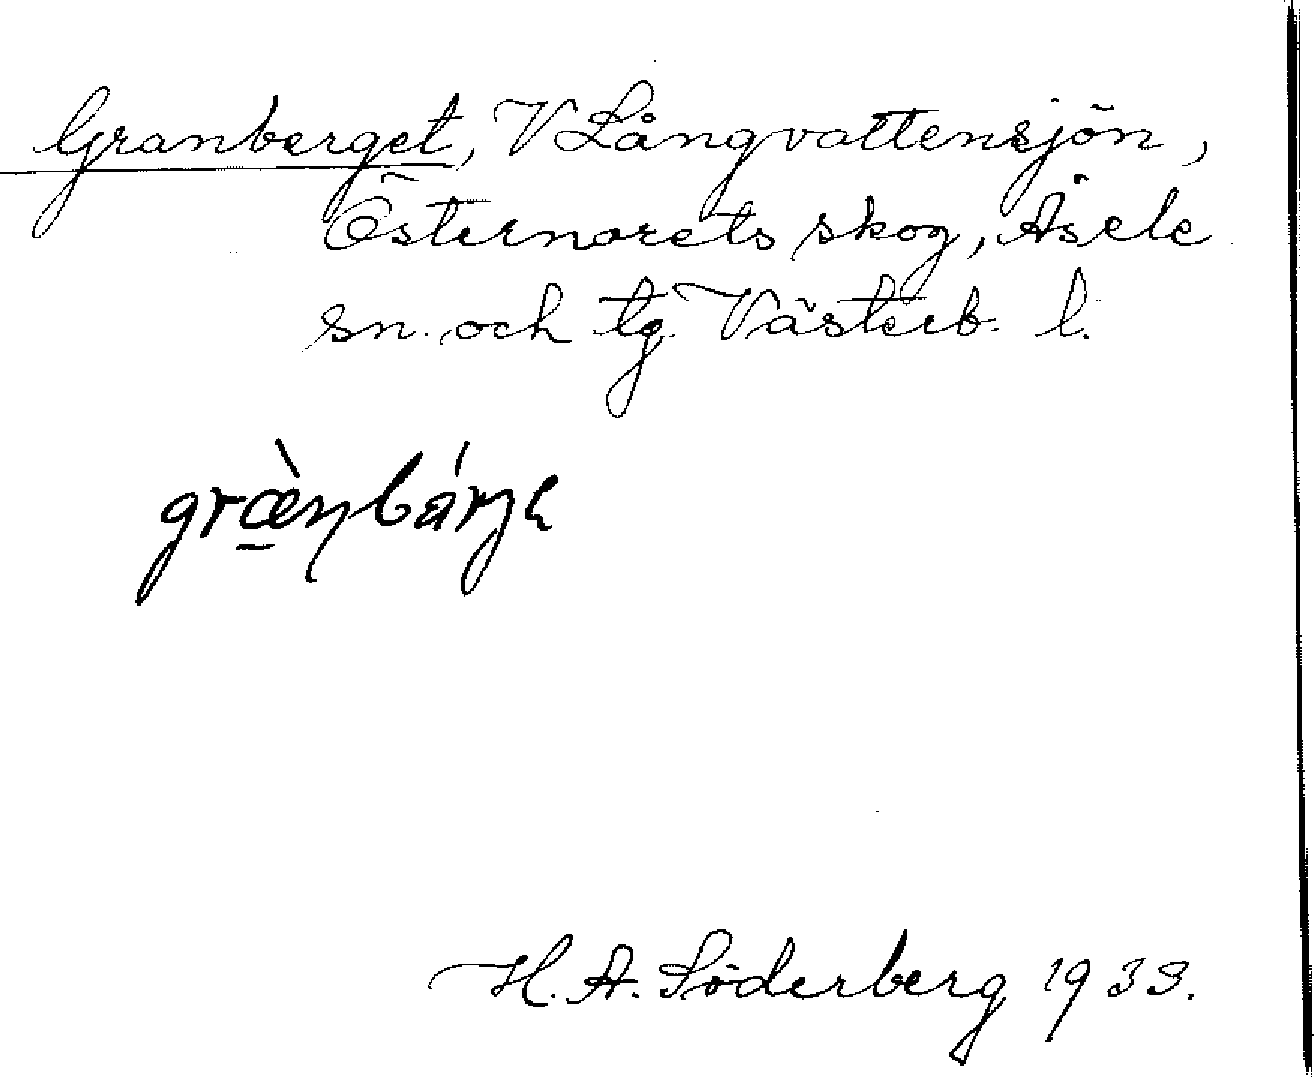 Granberget, V Långvattensjön,
Östernorets skog, Åsele
sn. och tg. Västerb. l.
H. A. Söderberg 1933.